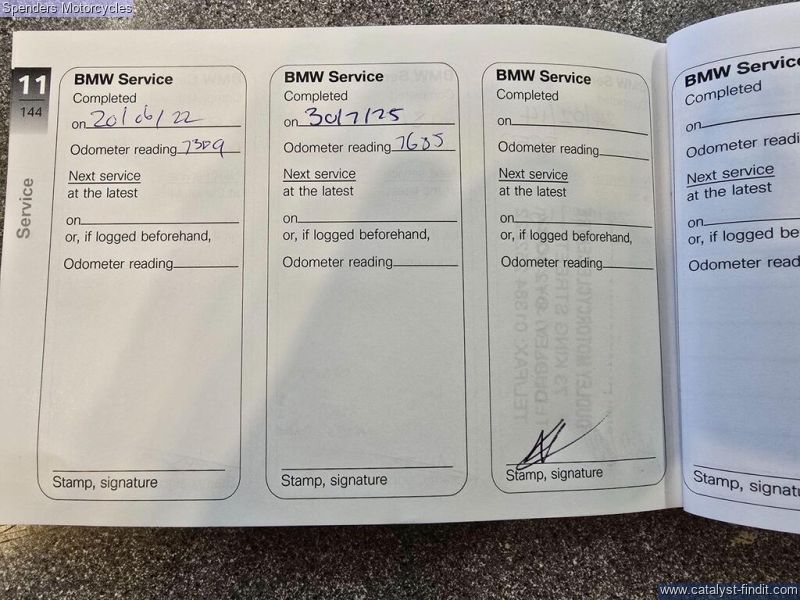 Spenders Motorcycles
11
144
Service
BMW Service
Completed
on 20/06/22
Odometer reading 7309
Next service
at the latest
on
or, if logged beforehand,
Odometer reading
Stamp, signature
BMW Service
Completed
on 30/7/25
Odometer reading 7635
Next service
at the latest
on
or, if logged beforehand,
Odometer reading
Stamp, signature
BMW Service
Completed
on
Odometer reading
Next service
at the latest
on
or, if logged beforehand,
Odometer reading
Stamp, signature
BMW Service
Completed
on
Odometer readi
Next service
at the latest
on
or, if logged be
Odometer read
Stamp, signatu
www.catalyst-findit.com